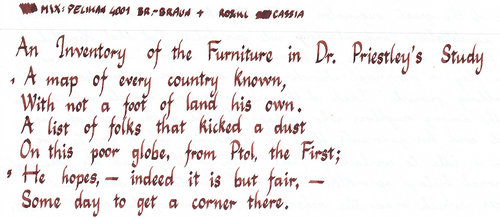 MIX: PELIKAN 4001 BR.-BRAUN + ROHR. CASSIA
An Inventory of the Furniture in Dr. Priestley's Study
1 A map of every country known,
With not a foot of land his own.
A list of folks that kicked a dust
On this poor globe, from Ptol. the First;
5 He hopes, — indeed it is but fair, —
Some day to get a corner there.